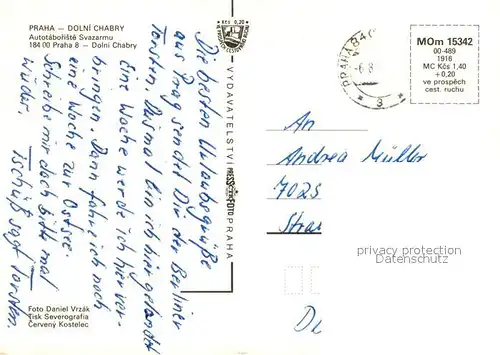 PRAHA — DOLNÍ CHABRY
Autotábořiště Svazarmu
184 00 Praha 8 — Dolní Chabry
Die besten Urlaubsgrüße
aus Prag sendet Dir der Berliner
Torsten. Diesmal bin ich hier gelandet
Eine Woche werde ich hier ver-
bringen. Dann fahre ich noch
eine Woche zur Ostsee.
Schreibe mir doch bitte mal
wieder.
Tschüß sagt Torsten.
Foto Daniel Vrzák
Tisk Severografia
Červený Kostelec
Kčs 0,20
VYDAVATELSTVÍ PRESSFOTO PRAHA
PRAHA
3
MOm 15342
00-489
1916
MC Kčs 1,40
+0,20
ve prospěch
cest. ruchu
An
Andrea Müller
7025
privacy protection
Datenschutz